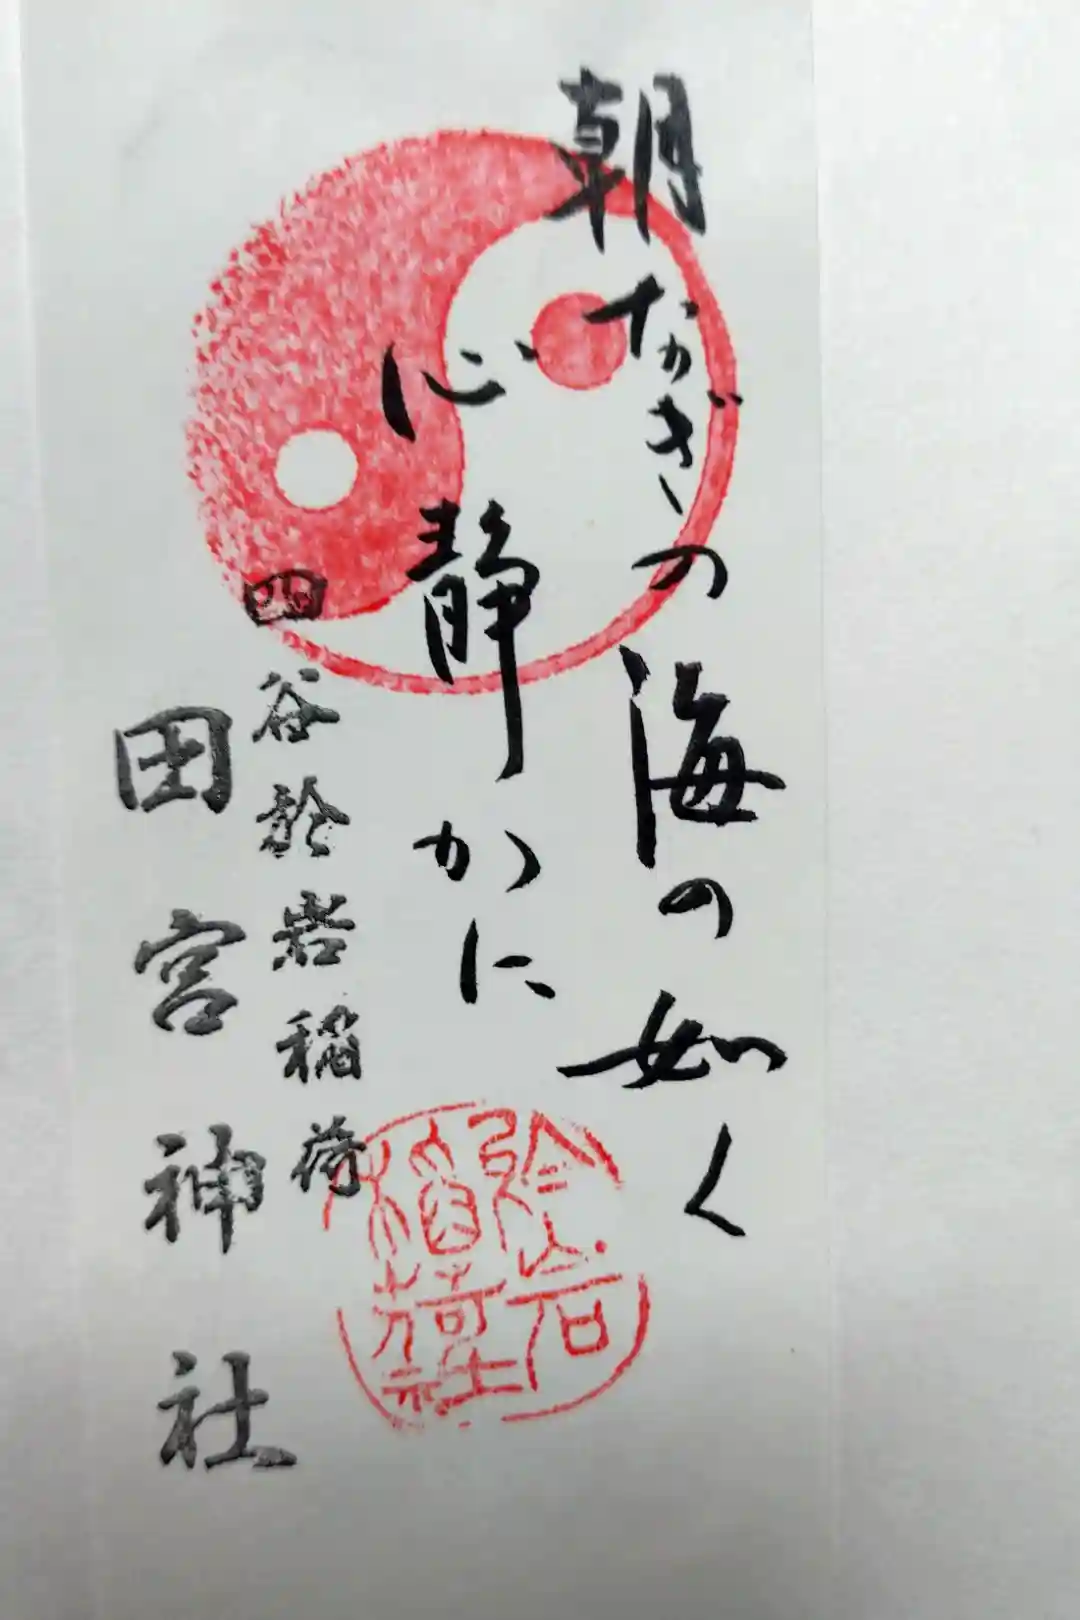 朝なぎの海の如く
心静かに
四谷於岩稲荷
田宮神社
於岩
稲荷社